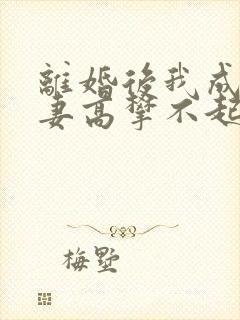 離婚後我成
妻高攀不起
梅墅